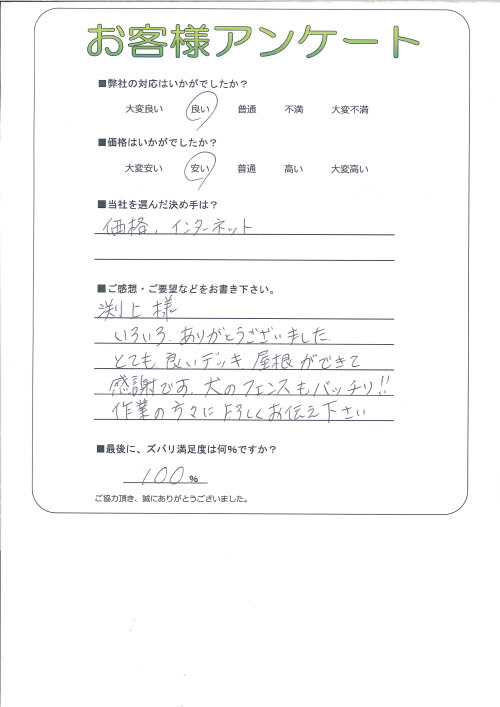 お客様アンケート
■弊社の対応はいかがでしたか？
大変良い 良い 普通 不満 大変不満
■価格はいかがでしたか？
大変安い 安い 普通 高い 大変高い
■当社を選んだ決め手は？
価格、インターネット
■ご感想・ご要望などをお書き下さい。
渕上様
いろいろ、ありがとうございました。
とても良いデッキ、屋根ができて
感謝です。犬のフェンスもバッチリ!!
作業の方々によろしくお伝え下さい
■最後に、ズバリ満足度は何％ですか？
100％
ご協力頂き、誠にありがとうございました。